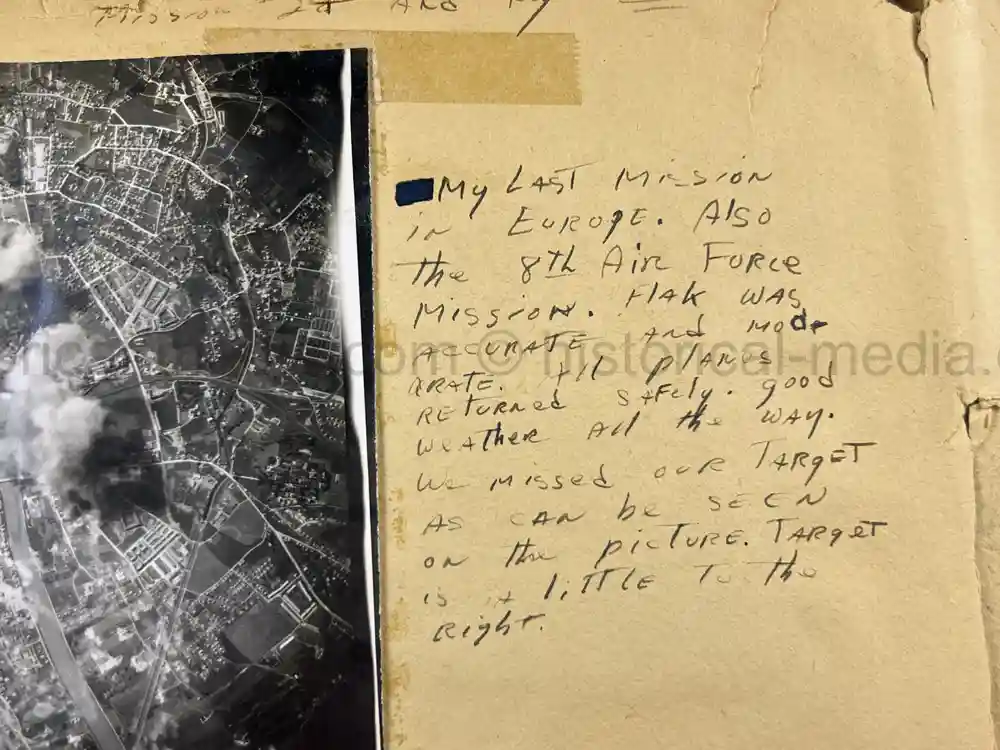 Mission 2d And My
My LAST Mission
in EUROPE. Also
the 8th Air Force
Mission. Flak was
ACCURATE And mode
RATE. All planes
RETURNed safely. good
weather All the way.
We missed our TARgET
AS CAN be SEEN
on the picTURE. TARgET
is A liTTLE To the
Right.
.com © historical-media.